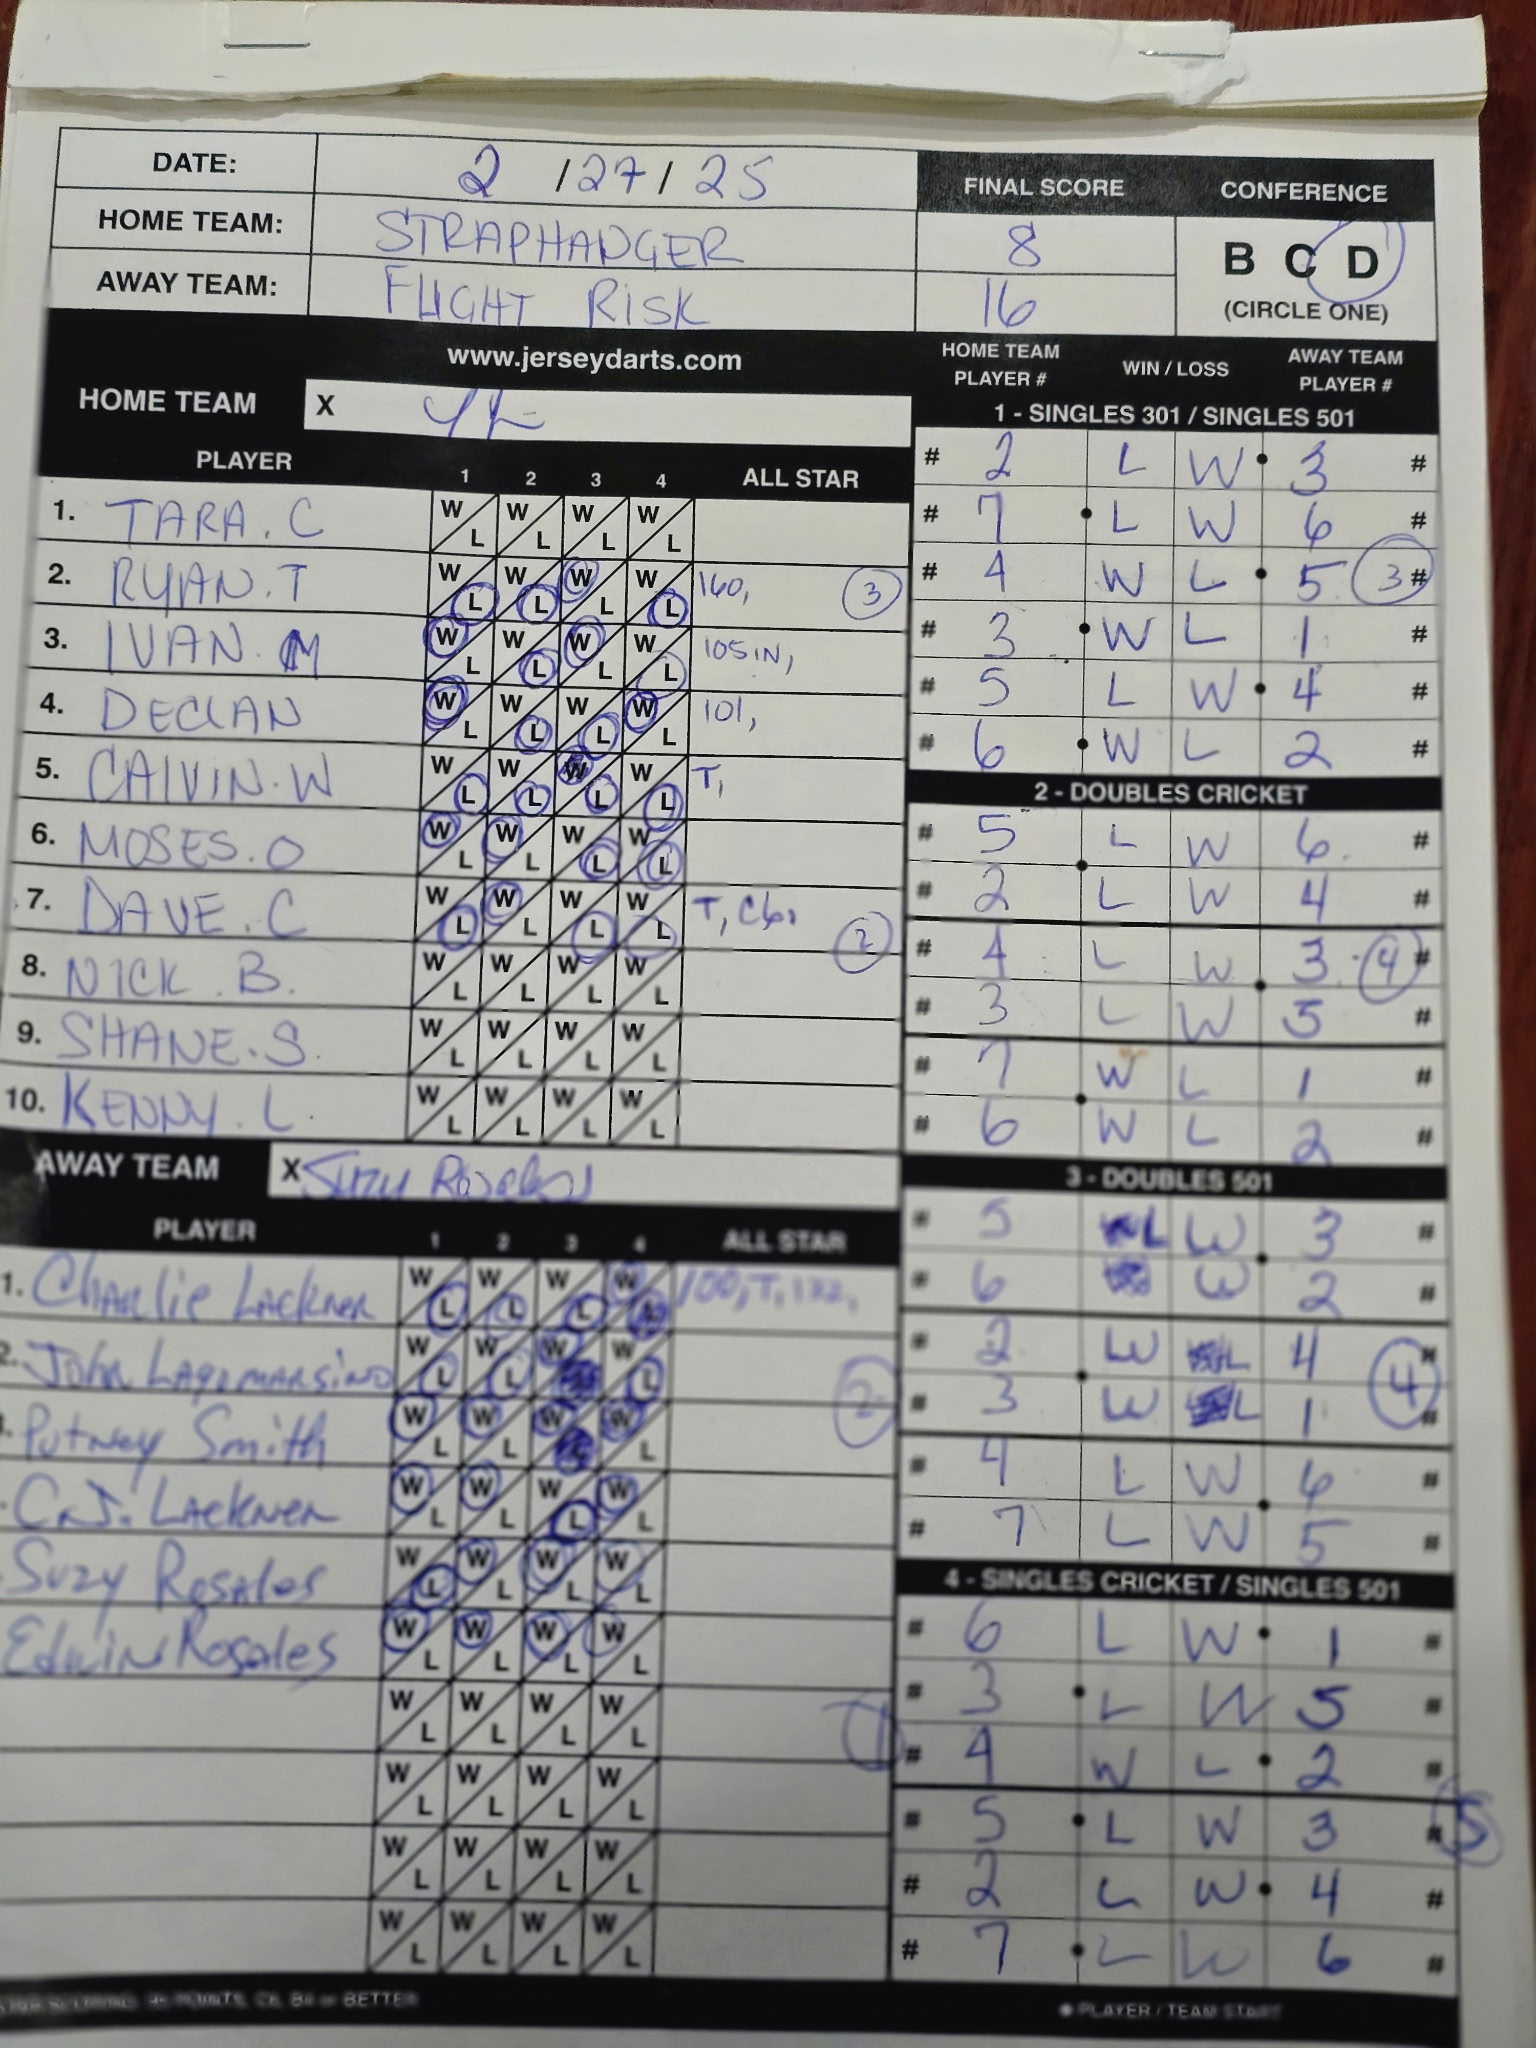 DATE: 2 / 27 / 25
FINAL SCORE CONFERENCE
HOME TEAM: STRAPHANGER 8
B C D
AWAY TEAM: FLIGHT RISK 16
(CIRCLE ONE)
www.jerseydarts.com
HOME TEAM X
PLAYER 1 2 3 4 ALL STAR
1. TARA. C W L W L W L W L
2. RYAN. T W L W L W L W L 160, 3
3. IVAN. M W L W L W L W L 105 IN,
4. DECLAN W L W L W L W L 101,
5. CALVIN. W W L W L W L W L T,
6. MOSES. O W L W L W L W L
7. DAVE. C W L W L W L W L T, C6, 2
8. NICK. B. W L W L W L W L
9. SHANE. S. W L W L W L W L
10. KENNY. L. W L W L W L W L
AWAY TEAM X Suzy Rosales
PLAYER 1 2 3 4 ALL STAR
1. Charlie Lackner W L W L W L W L 100, T, 122,
2. John Lagomarsino W L W L W L W L 2
Putney Smith W L W L W L W L
C.J. Lackner W L W L W L W L
Suzy Rosales W L W L W L W L
Edwin Rosales W L W L W L W L
W L W L W L W L
W L W L W L W L
W L W L W L W L
W L W L W L W L
HOME TEAM PLAYER # WIN / LOSS AWAY TEAM PLAYER #
1 - SINGLES 301 / SINGLES 501
# 2 L W 3 #
# 7 L W 6 #
# 4 W L 5 3 #
# 3 W L 1 #
# 5 L W 4 #
# 6 W L 2 #
2 - DOUBLES CRICKET
# 5 L W 6 #
# 2 L W 4 #
# 4 L W 3 4 #
# 3 L W 5 #
# 7 W L 1 #
# 6 W L 2 #
3 - DOUBLES 501
# 5 L W 3 #
# 6 W 2 #
# 2 W L 4 #
# 3 W L 1 4 #
# 4 L W 6 #
# 7 L W 5 #
4 - SINGLES CRICKET / SINGLES 501
# 6 L W 1 #
# 3 L W 5 #
# 4 W L 2 #
# 5 L W 3 # 5
# 2 L W 4 #
# 7 L W 6 #
POINTS, C6, B4 or BETTER
PLAYER / TEAM START